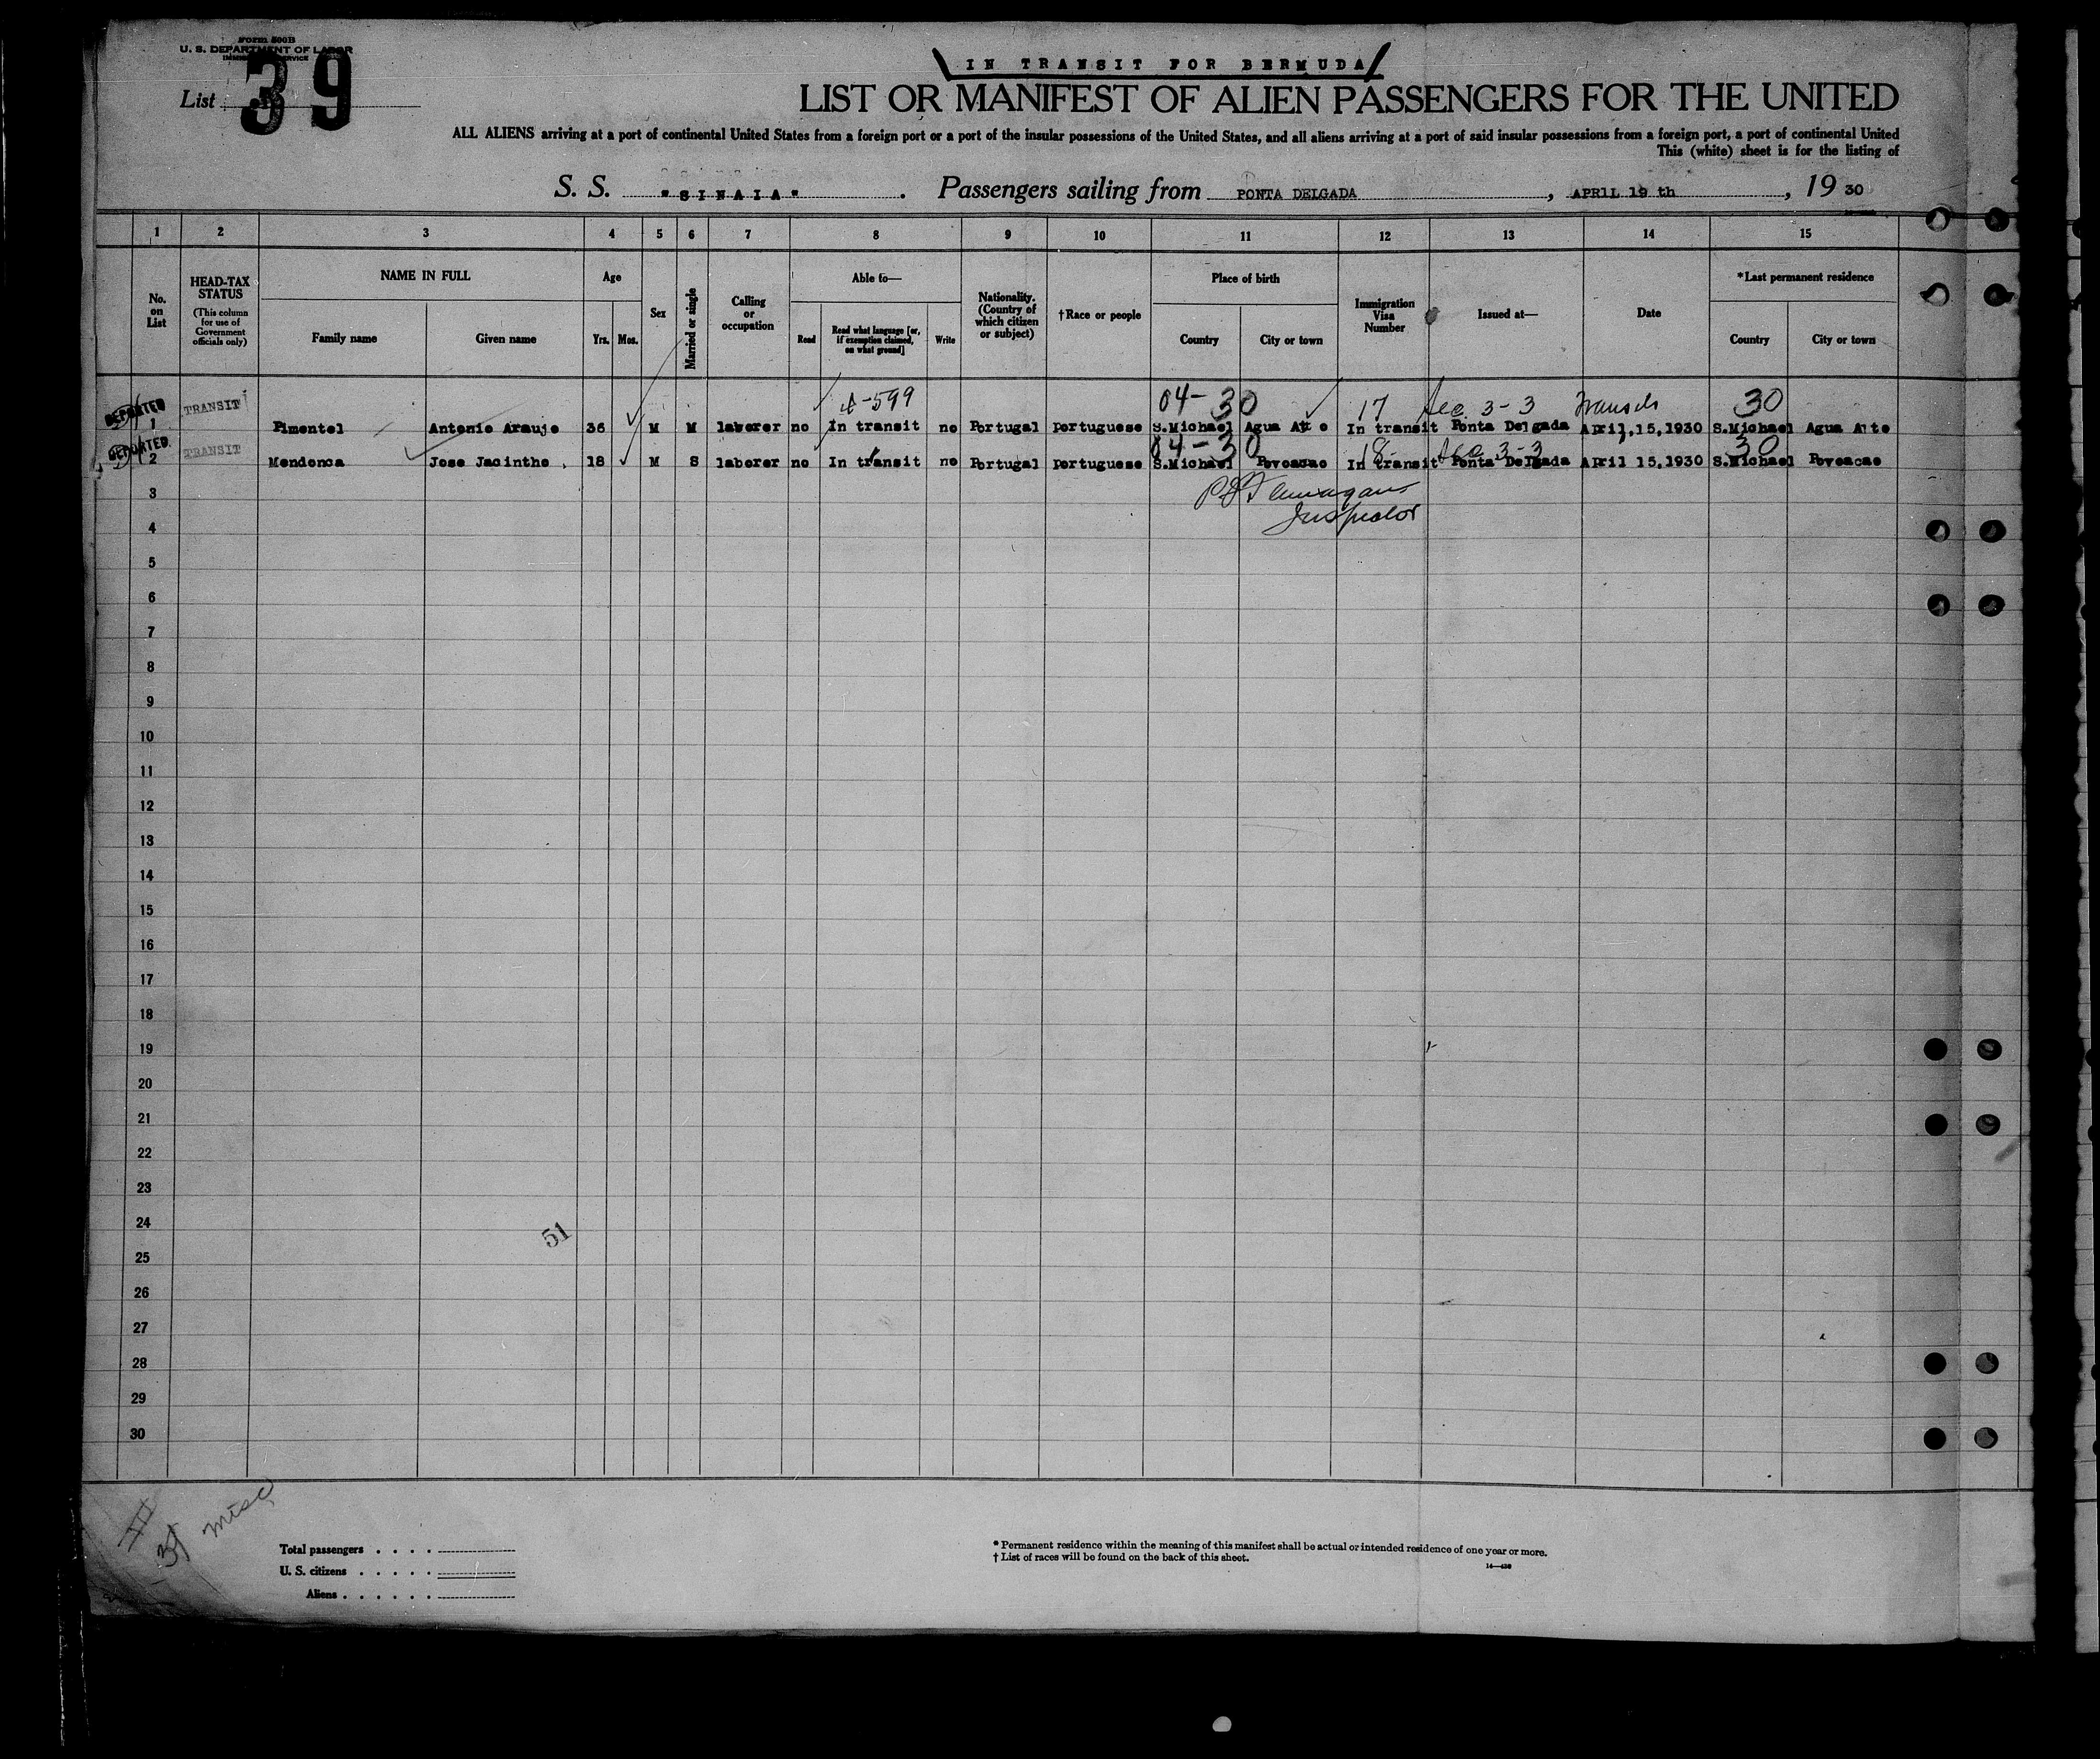 Form 500B
U. S. DEPARTMENT OF LABOR
IMMIGRATION SERVICE
List 39
IN TRANSIT FOR BERMUDA
LIST OR MANIFEST OF ALIEN PASSENGERS FOR THE UNITED
ALL ALIENS arriving at a port of continental United States from a foreign port or a port of the insular possessions of the United States, and all aliens arriving at a port of said insular possessions from a foreign port, a port of continental United
This (white) sheet is for the listing of
S. S. "SINAIA". Passengers sailing from PONTA DELGADA, APRIL 19 th, 19 30
1 2 3 4 5 6 7 8 9 10 11 12 13 14 15
No. on List
HEAD-TAX STATUS
(This column for use of Government officials only)
NAME IN FULL
Family name Given name
Age
Yrs. Mos.
Sex
Married or single
Calling or occupation
Able to—
Read
Read what language [or, if exemption claimed, on what ground]
Write
Nationality. (Country of which citizen or subject)
†Race or people
Place of birth
Country City or town
Immigration Visa Number
Issued at—
Date
*Last permanent residence
Country City or town
599 04-30 17 Sec. 3-3 Transit 30
DEPORTED 1 TRANSIT Pimentel Antonio Araujo 36 M M laborer no In transit no Portugal portuguese S.Michael Agua In transit Ponta Delgada April,15,1930 S.Michael Agua
04-30 18 Sec 3-3 30
DEPORTED 2 TRANSIT Mendonca Jose Jacintho 18 M S laborer no In transit no Portugal portuguese S.Michael Povoacao In transit Ponta Delgada April 15,1930 S.Michael Povoacao
3
Inspector
4
5
6
7
8
9
10
11
12
13
14
15
16
17
18
19
20
21
22
23
24
51
25
26
27
28
29
30
misc
Total passengers . . . .
U. S. citizens . . . . .
Aliens . . . . . .
* Permanent residence within the meaning of this manifest shall be actual or intended residence of one year or more.
† List of races will be found on the back of this sheet.